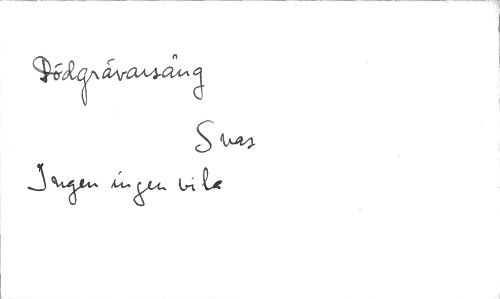 Dödgrävarsång
Svas
Ingen ingen vila